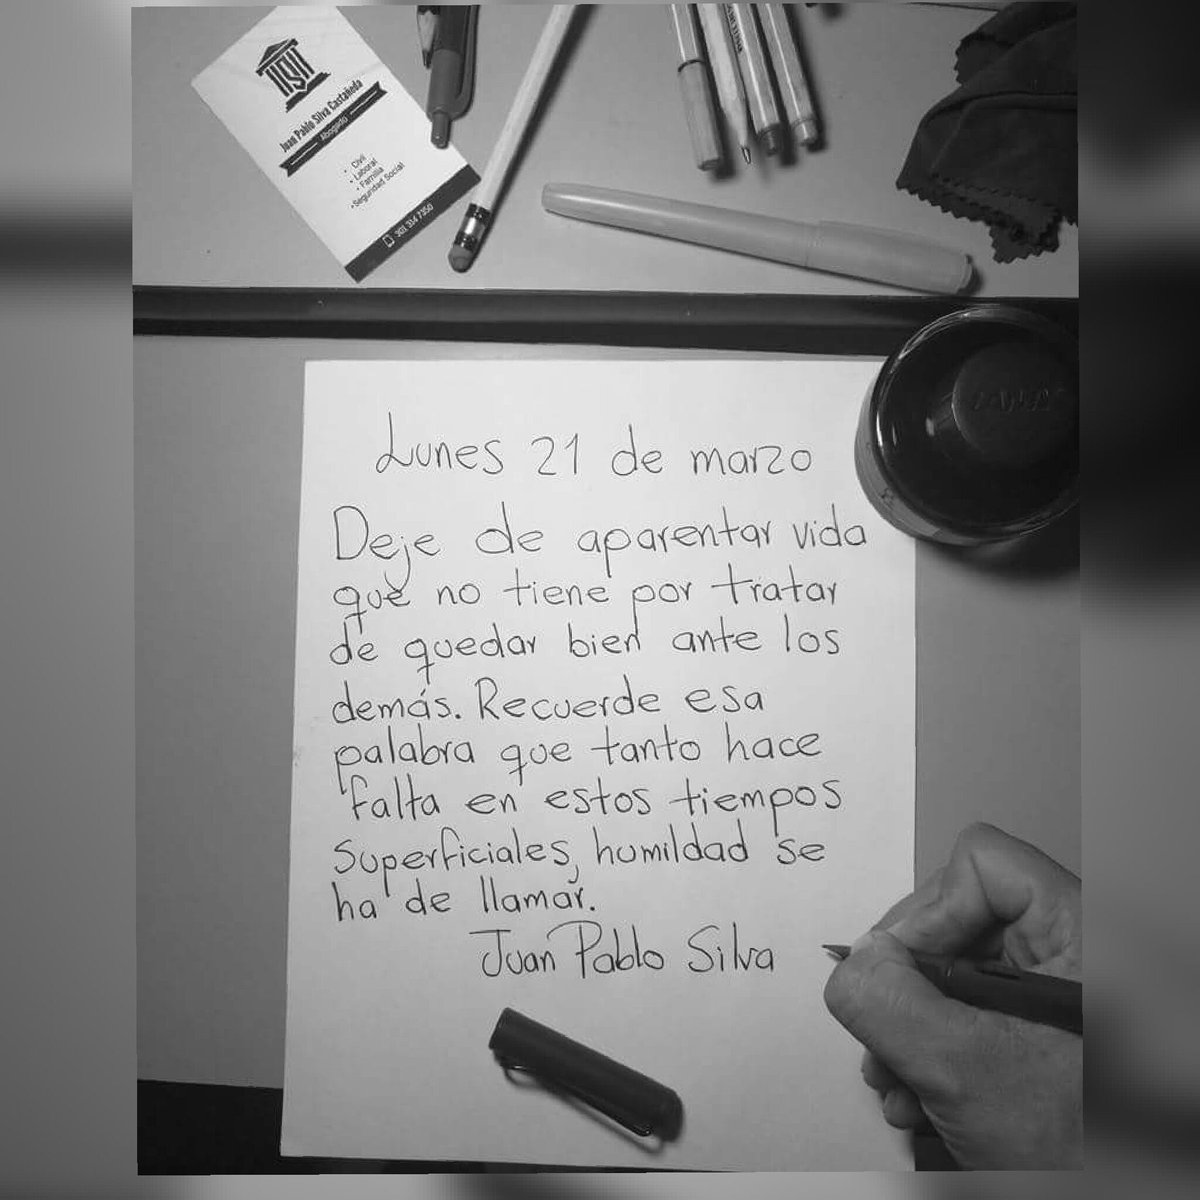 Juan Pablo Silva Castañeda
Abogado
• Civil
• Laboral
• Familia
• Seguridad Social
Lunes 21 de marzo
Deje de aparentar vida
que no tiene por tratar
de quedar bien ante los
demás. Recuerde esa
palabra que tanto hace
falta en estos tiempos
superficiales, humildad se
ha de llamar.
Juan Pablo Silva